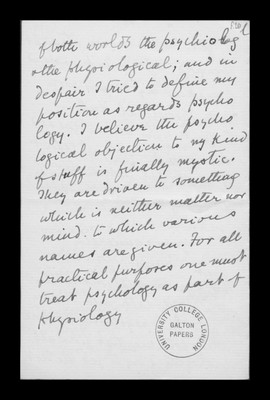 of both worlds the psycholog
& the physiological; and in
despair I tried to define my
position as regards psycho
logy. I believe the psycho
logical objection to my kind
of stuff is finally mystic.
They are driven to something
which is neither matter nor
mind. to which various
names are given. For all
practical purposes one must
treat psychology as part of
physiology
UNIVERSITY COLLEGE LONDON
GALTON
PAPERS